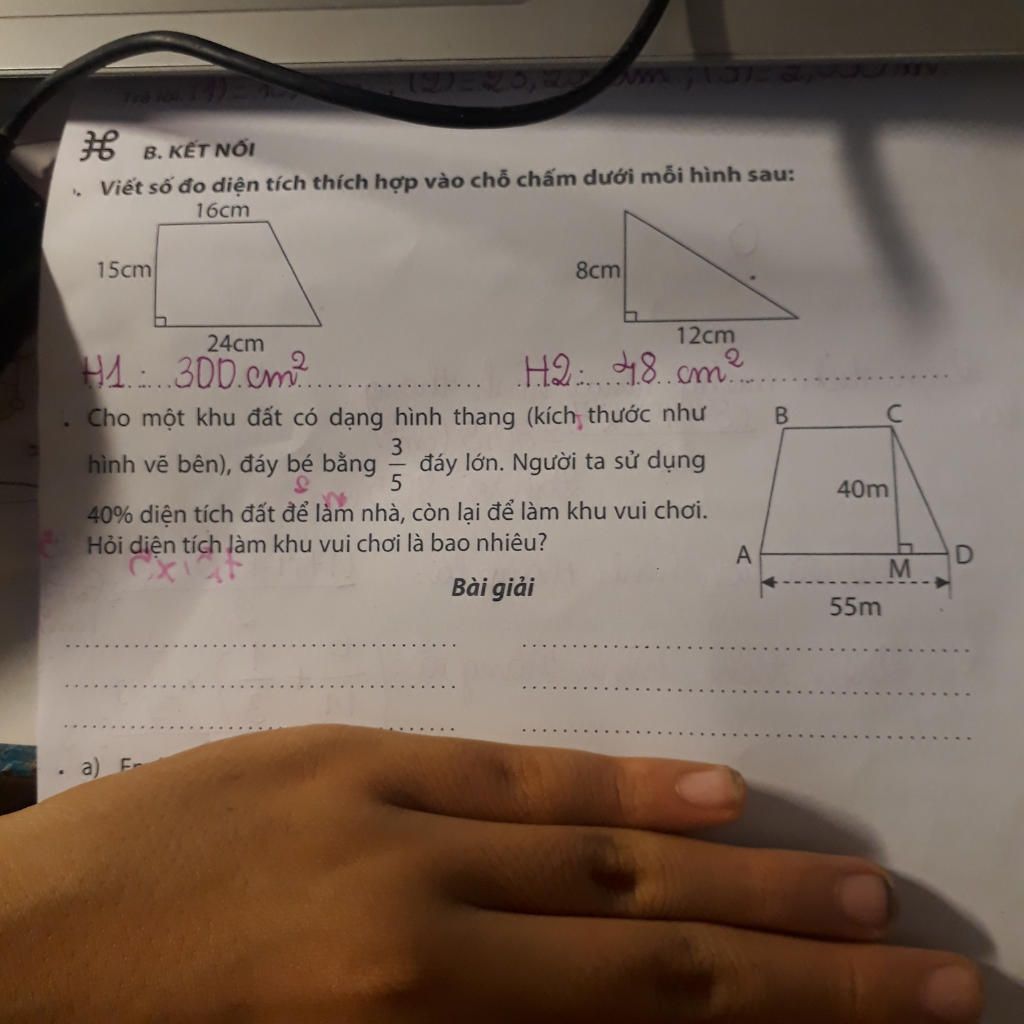 B. KẾT NỐI
Viết số đo diện tích thích hợp vào chỗ chấm dưới mỗi hình sau:
16cm
15cm
24cm
8cm
12cm
H1: 300 cm²
H2: 48 cm²
Cho một khu đất có dạng hình thang (kích thước như
hình vẽ bên), đáy bé bằng 3/5 đáy lớn. Người ta sử dụng
40% diện tích đất để làm nhà, còn lại để làm khu vui chơi.
Hỏi diện tích làm khu vui chơi là bao nhiêu?
B C
40m
A M D
55m
Bài giải
a)